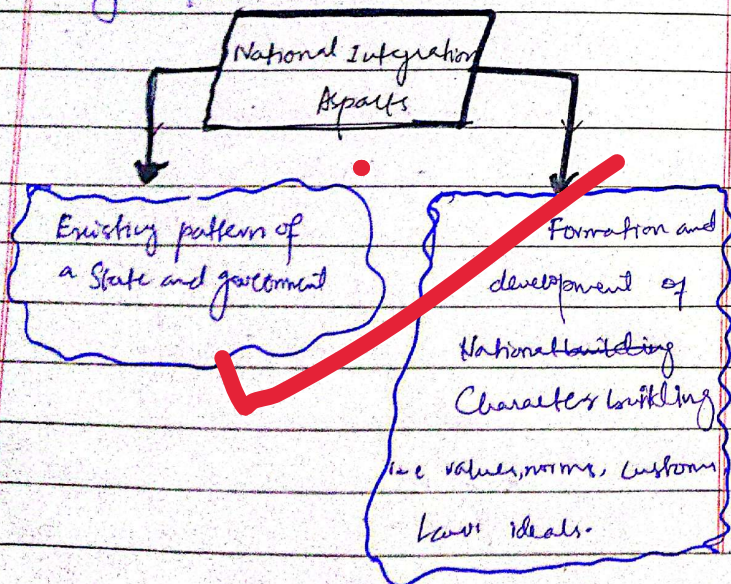 National Integration
Aspacts
Existing pattern of
a State and government
Formation and
development of
National building
Character building
i.e values, norms, customs,
Laws ideals.